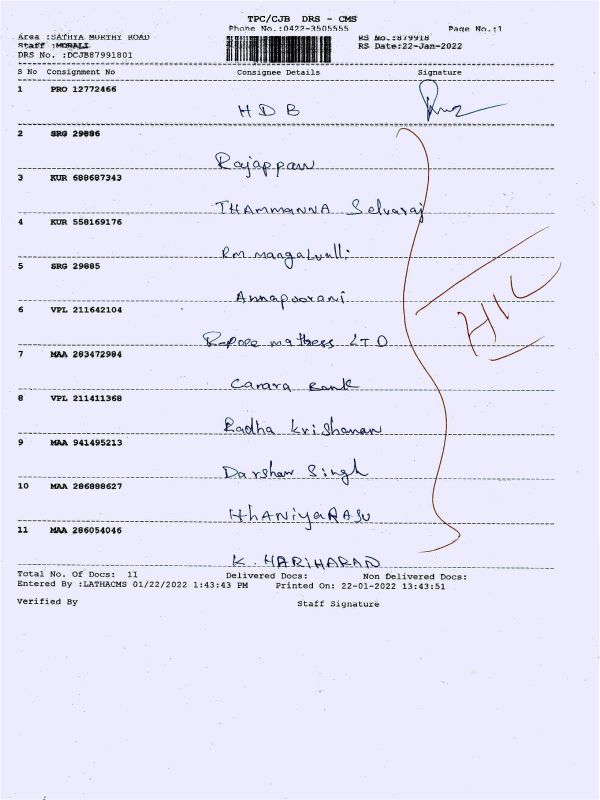 TPC/CJB DRS - CMS
Phone No.:0422-3505555 Page No.:1
Area :SATHYA MURTHY ROAD RS No.:879918
Staff :MORALI RS Date:22-Jan-2022
DRS No. :DCJB87991801
S No Consignment No Consignee Details Signature
1 PRO 12772466
HDB
2 SRG 29886
Rajappan
3 KUR 688687343
THAmmanna Selvaraj
4 KUR 558169176
Rm.mangalvalli
5 SRG 29885
Annapoorani
6 VPL 211642104
Repose mattress LTD
7 MAA 283472984
Canara Bank
8 VPL 211411368
Radha krishanan
9 MAA 941495213
Darshan Singh
10 MAA 286888627
HhANiyaRASU
11 MAA 286054046
K. HARIHARAN
Total No. Of Docs: 11 Delivered Docs: Non Delivered Docs:
Entered By :LATHACMS 01/22/2022 1:43:43 PM Printed On: 22-01-2022 13:43:51
Verified By Staff Signature